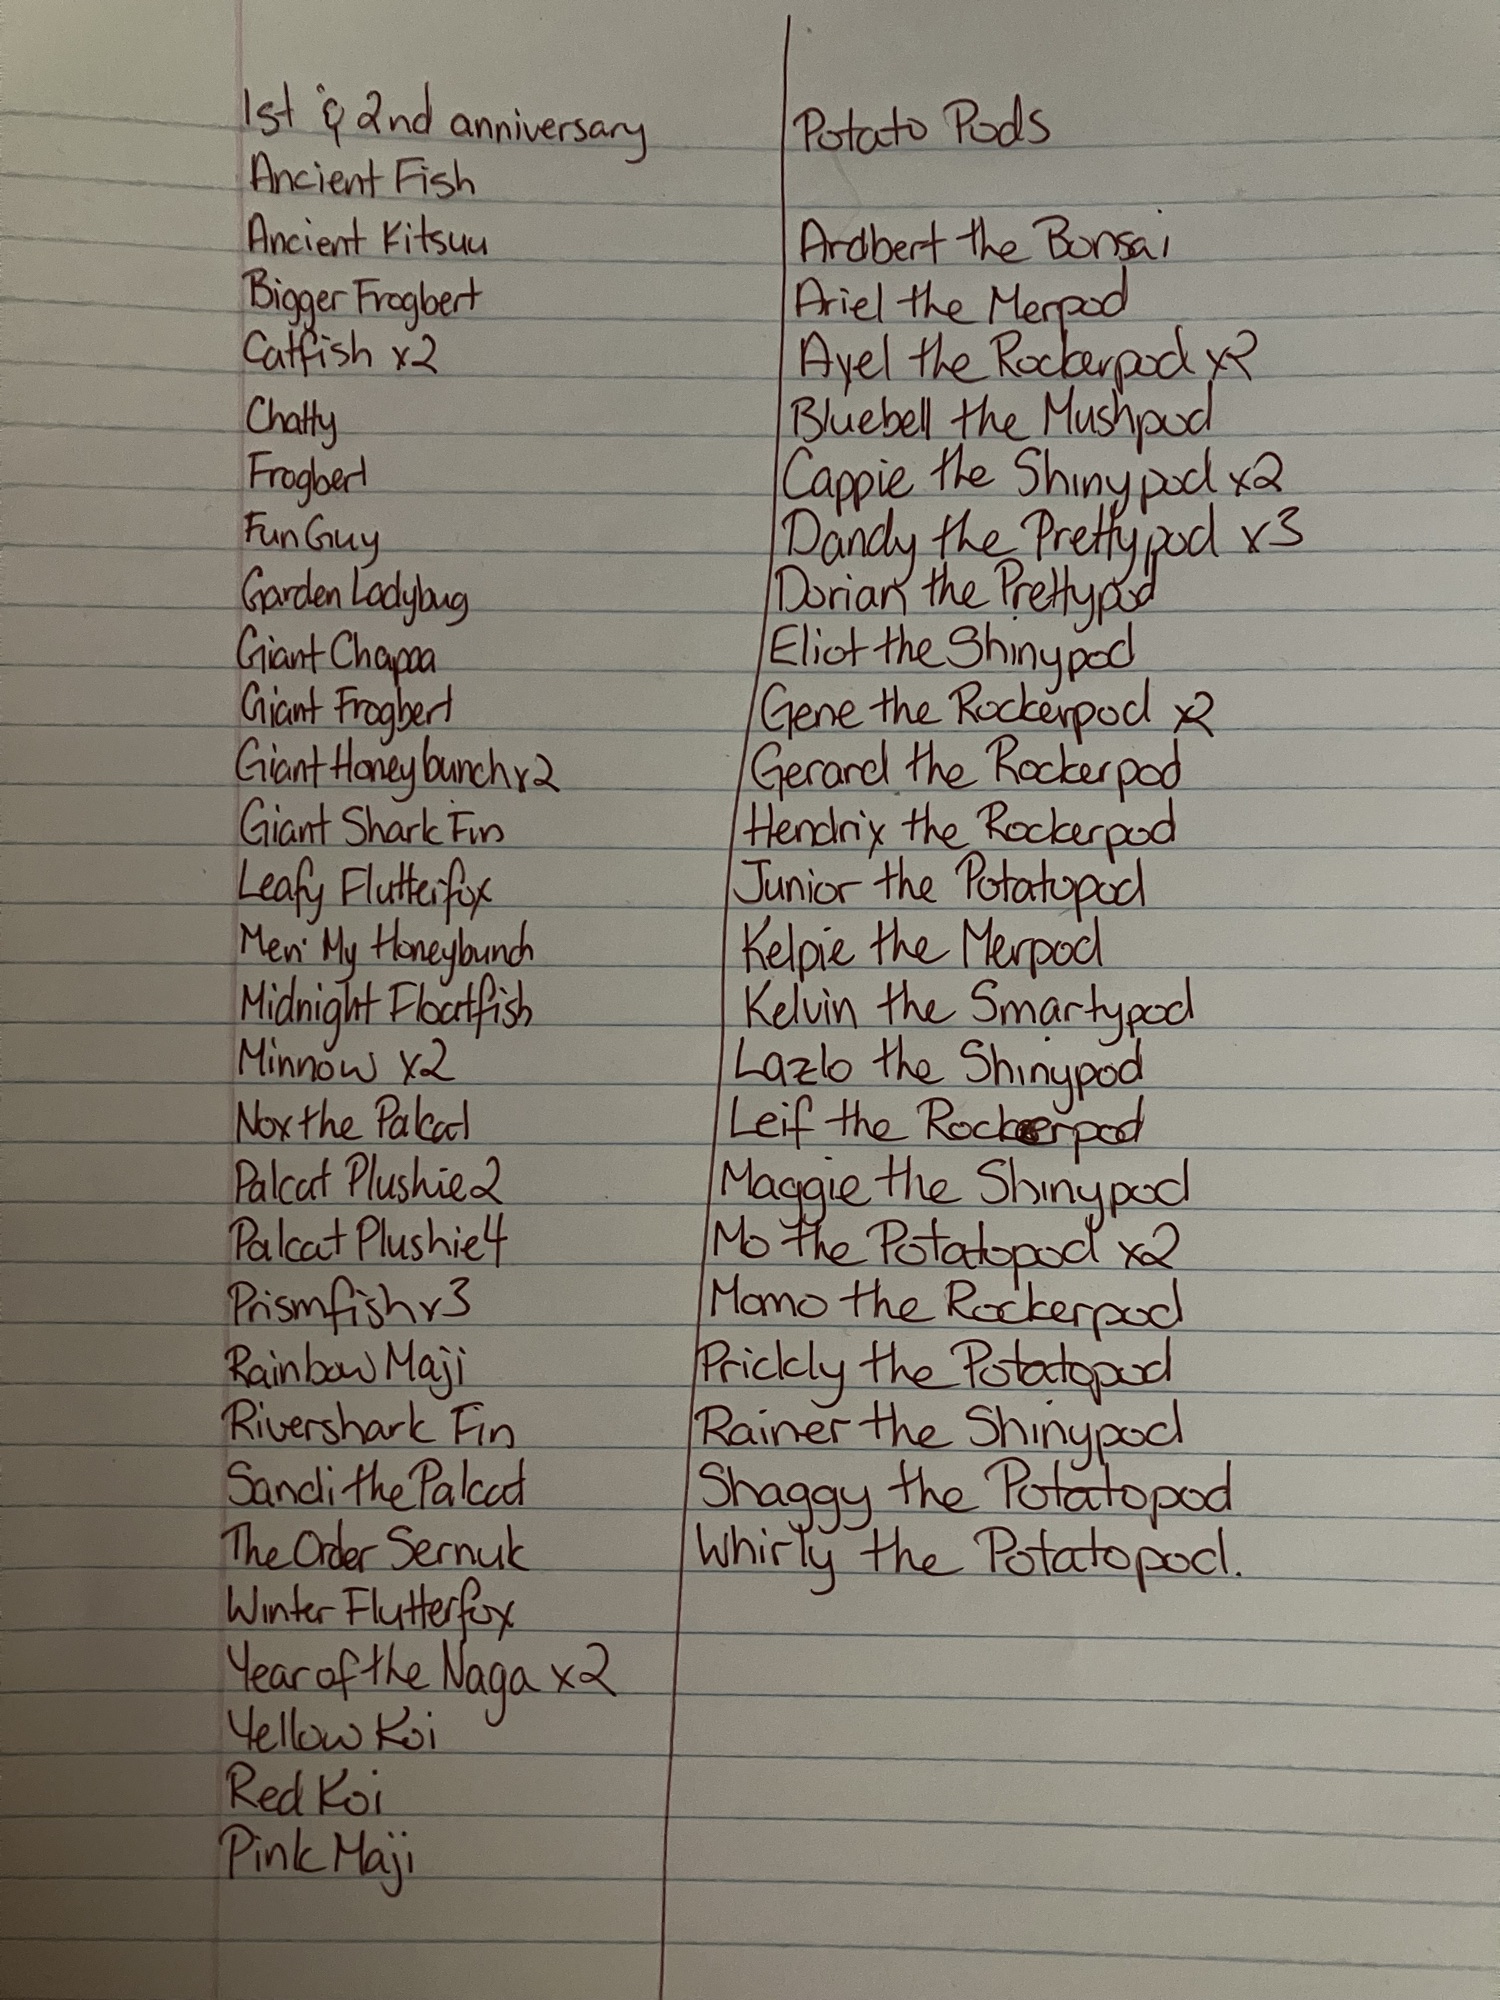 1st & 2nd anniversary
Ancient Fish
Ancient Kitsuu
Bigger Frogbert
Catfish x2
Chatty
Frogbert
Fun Guy
Garden Ladybug
Giant Chapaa
Giant Frogbert
Giant Honeybunch x2
Giant Shark Fin
Leafy Flutterfox
Meri My Honeybunch
Midnight Floatfish
Minnow x2
Nox the Palcat
Palcat Plushie 2
Palcat Plushie 4
Prismfish x3
Rainbow Maji
Rivershark Fin
Sandi the Palcat
The Order Sernuk
Winter Flutterfox
Year of the Naga x2
Yellow Koi
Red Koi
Pink Maji
Potato Pods
Ardbert the Bonsai
Ariel the Merpod
Ayel the Rockerpod x2
Bluebell the Mushpod
Cappie the Shinypod x2
Dandy the Prettypod x3
Dorian the Prettypod
Eliot the Shinypod
Gene the Rockerpod x2
Gerard the Rockerpod
Hendrix the Rockerpod
Junior the Potatopod
Kelpie the Merpod
Kelvin the Smartypod
Lazlo the Shinypod
Leif the Rockerpod
Maggie the Shinypod
Mo the Potatopod x2
Momo the Rockerpod
Prickly the Potatopod
Rainer the Shinypod
Shaggy the Potatopod
Whirly the Potatopod.